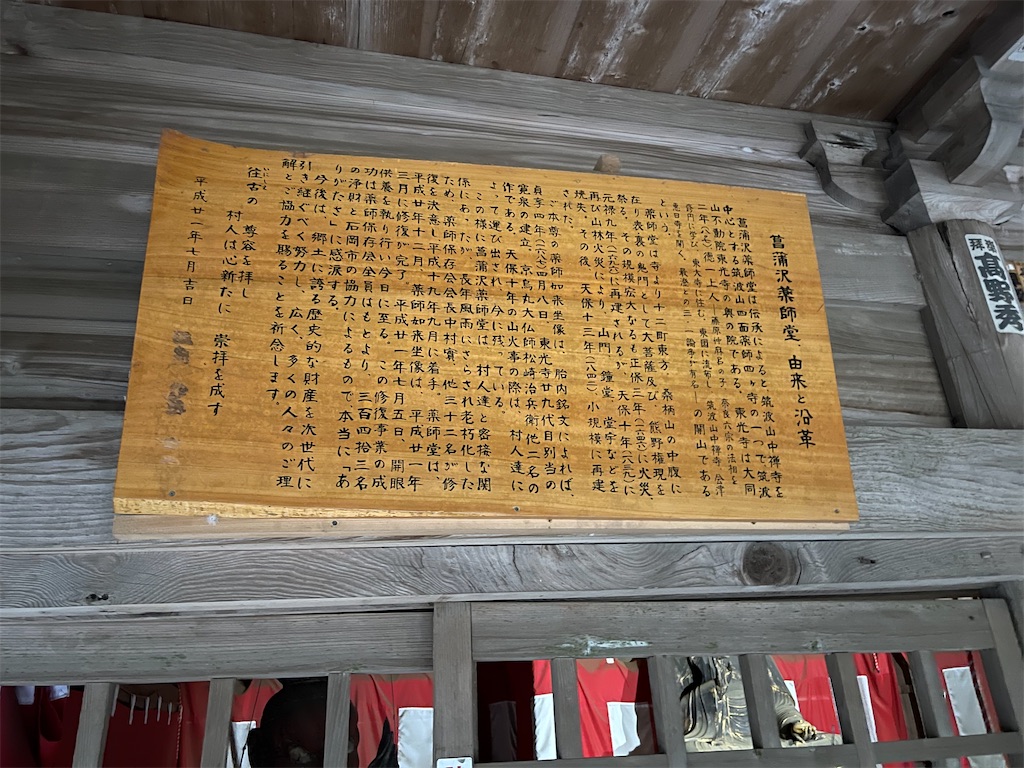 菖蒲沢薬師堂、由来と沿革
菖蒲沢薬師堂は伝承によると、筑波山中禅寺を
中心とする筑波山四面薬師四ヶ寺の一つで、筑波
山不動院東光寺の奥の院である。東光寺は大同
二年(八〇七)徳一上人
東大寺に住む、東国に流布し、筑波山中禅寺、会津
恵日寺を開く、最澄との三一論争で有名
の開山である
という。
薬師堂は寺より十二町東方、桑柄山の中腹に
在り表裏の鬼門として大菩薩及び、熊野権現を
祭る。その規模宏大なるも正保二年(一六四五)に火災、
元禄九年(一六九六)に再建されるが、天保十年(一八三九)に
再び山林火災により、山門、鐘堂、堂宇などを
焼失、その後、天保十三年(一八四二)、小規模に再建
された。
ご本尊の薬師如来坐像は、胎内銘文によれば、
貞享四年(一六八七)四月八日、東光寺廿九代目別当の
寛泉の建立、京烏丸大仏師松崎治兵衛他二名の
作である。天保十年の山火事の際は、村人達に
よって運び出され、今に残っている。
この様に菖蒲沢薬師堂は、村人達と密接な関
係にあったが、長年風雨にさらされ老朽化した
ため、薬師保存会会長中村實、他三十二名が修
復を決意し平成十九年九月に着手。薬師堂は、
平成廿年十二月、薬師如来坐像は、平成廿一年
三月に修復が完了。平成廿一年七月五日、開眼
供養を執り行い今日に至る。この修復事業の成
功は薬師保存会全員はもとより、三百四拾三名
の浄財と石岡市の協力によるもので本当に「あ
りがたさ」に感涙する。
今後は、郷土に誇る歴史的な財産を次世代に
引き継ぐべく努力し、広く、多くの人々のご理
解とご協力を賜ることを祈念します。
往古の 尊容を拝し
いにしえ
村人は心新たに 崇拝を成す
平成廿一年七月吉日
拝
高野秀